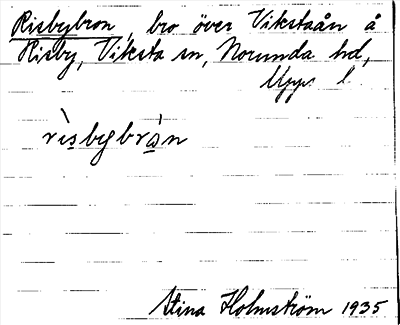 Risbybron, bro över Vikstaån å
Risby, Viksta sn, Norunda hd,
Upps. l.
rìsbybròn
Stina Holmström 1935